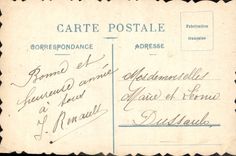 CARTE POSTALE
Fabrication
française
CORRESPONDANCE
ADRESSE
Bonne et
heureuse année
à tous
J. Renault
Mesdemoiselles
Marie et
Dussault